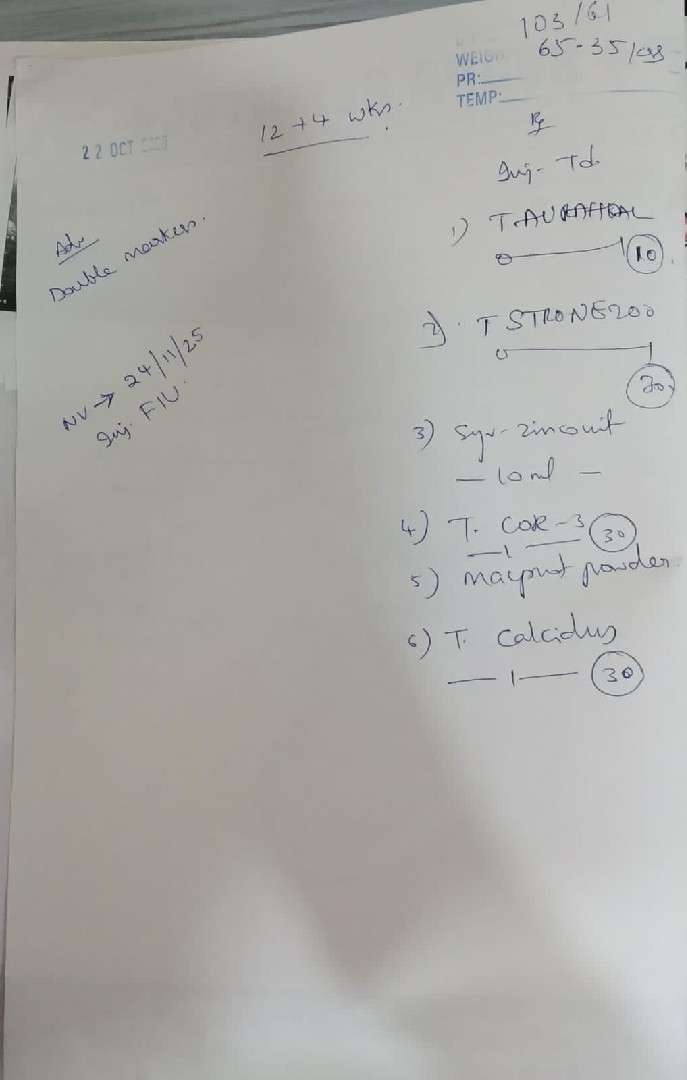 103/61
WEIG 65.35 kgs
PR:
TEMP:
22 OCT
12+4 wks.
Rx
Inj- Td.
Adv
Double markers.
1) T.
10
2) T STRONE 200
20
NV → 24/11/25
Inj. FIV.
3) Syr- zincovit
— 10 ml —
4) T. COR-3 30
— 1 —
5) powder
6) T. Calcidus
— 1 — 30